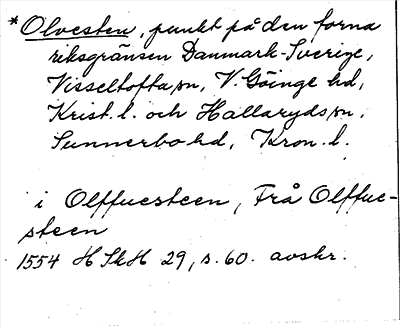 *Olvesten, punkt på den forna
riksgränsen Danmark-Sverige,
Visseltofta sn, V. Göinge hd,
Krist. l. och Hallaryds sn,
Sunnerbo hd, Kron. l.
i Olffuesteen, Frå Olffue-
steen
1554 H Sk H 29, s. 60. avskr.